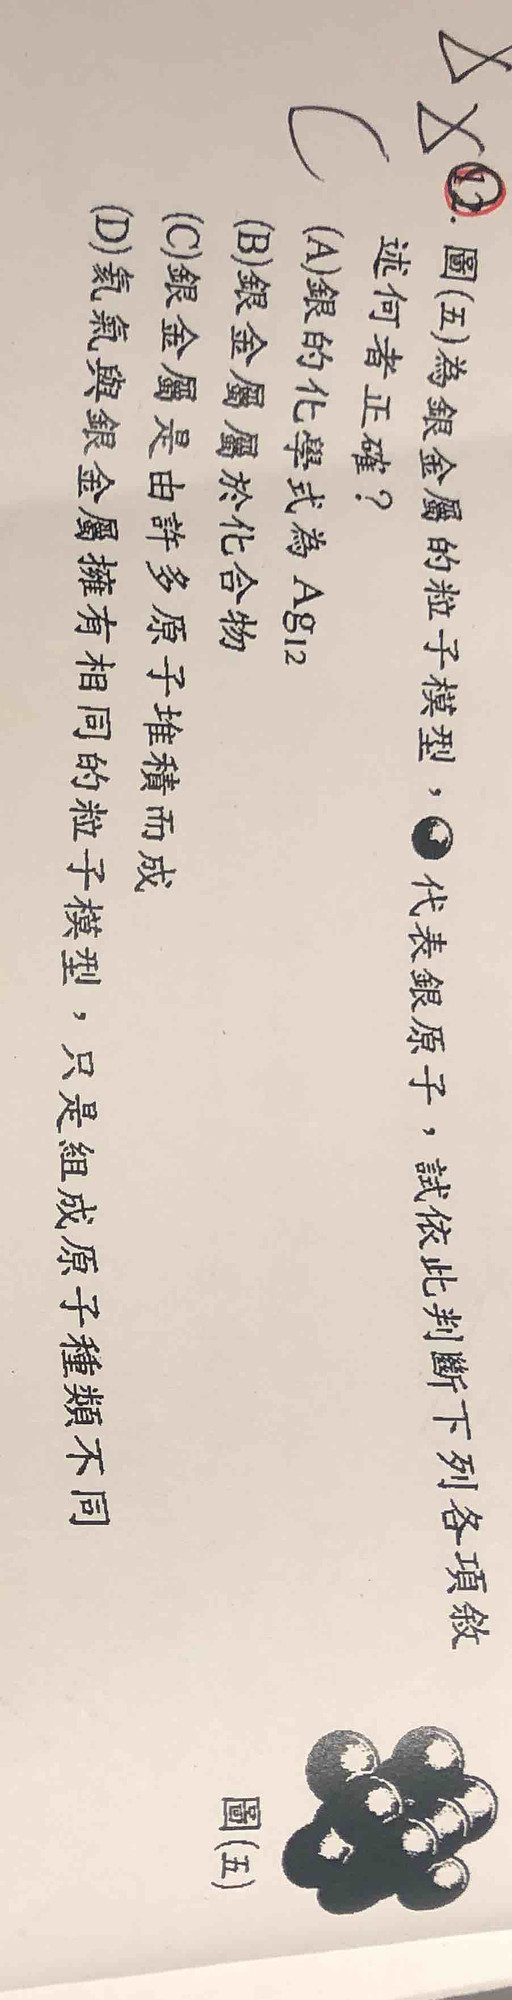 12. 圖(五)為銀金屬的粒子模型，代表銀原子，試依此判斷下列各項敘
述何者正確？
(A)銀的化學式為 Ag12
(B)銀金屬屬於化合物
(C)銀金屬是由許多原子堆積而成
(D)氦氣與銀金屬擁有相同的粒子模型，只是組成原子種類不同
圖(五)